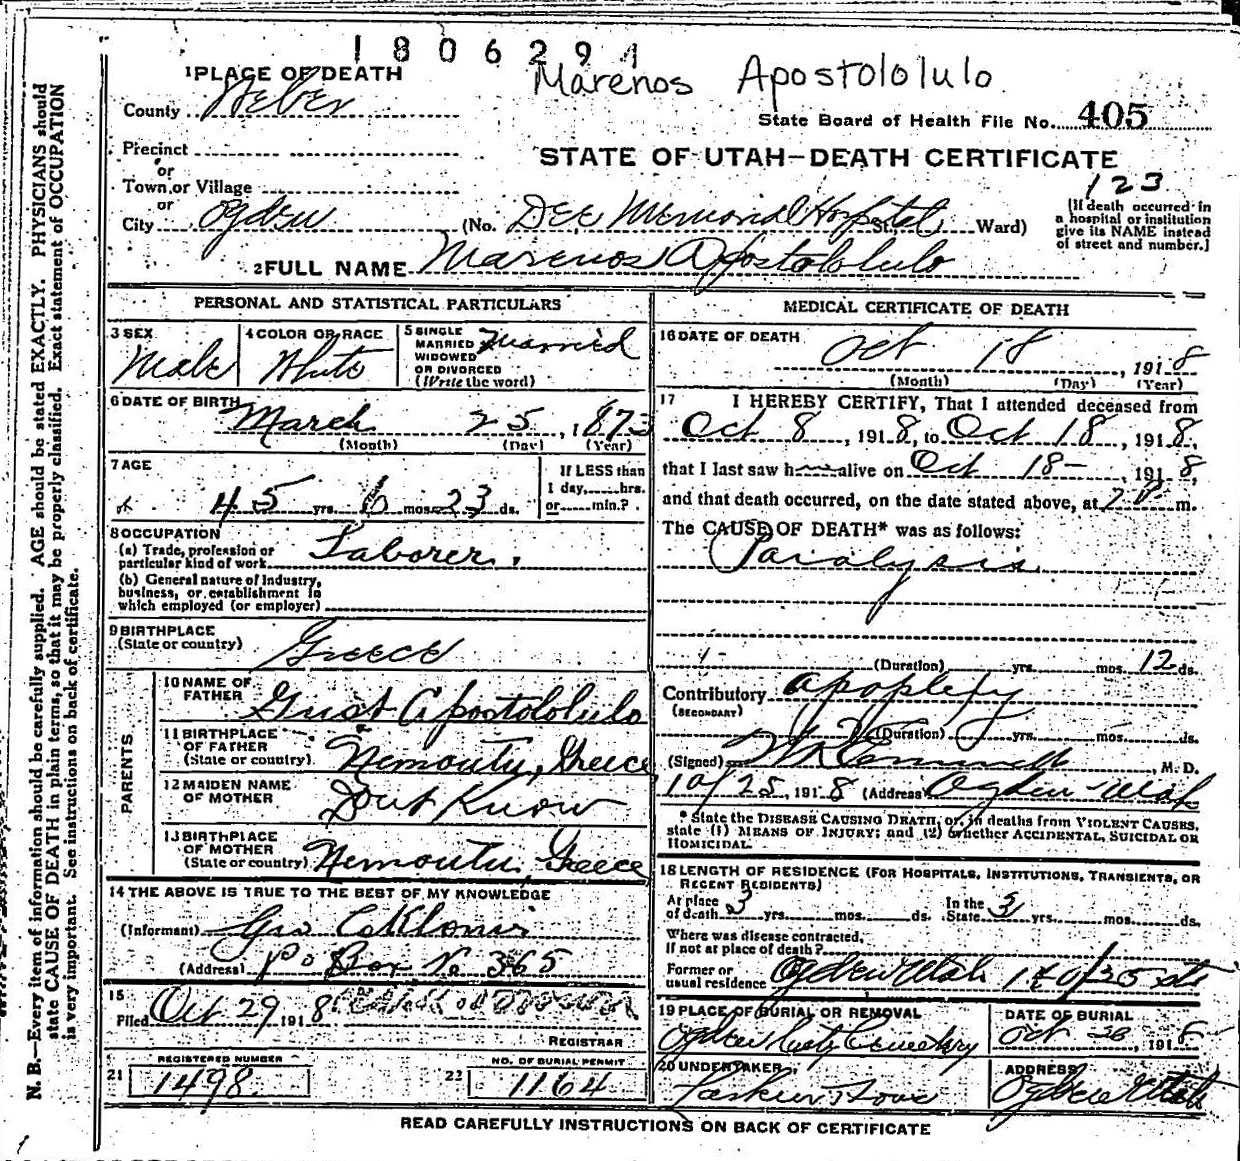 1806291
Marenos Apostololulo
1 PLACE OF DEATH
County Weber
State Board of Health File No. 405
Precinct
or
Town or Village
or
City Ogden
STATE OF UTAH—DEATH CERTIFICATE
123
(No. Dee Memorial Hospital St. Ward)
[If death occurred in a hospital or institution give its NAME instead of street and number.]
2 FULL NAME Marenos Apostololulo
PERSONAL AND STATISTICAL PARTICULARS
3 SEX
Male
4 COLOR OR RACE
White
5 SINGLE
MARRIED
WIDOWED
OR DIVORCED
(Write the word)
Married
6 DATE OF BIRTH
March 25, 1873
(Month) (Day) (Year)
7 AGE
45 yrs. 6 mos. 23 ds.
If LESS than
1 day,......hrs.
or......min.?
8 OCCUPATION
(a) Trade, profession or
particular kind of work Laborer.
(b) General nature of Industry,
business, or establishment in
which employed (or employer)
9 BIRTHPLACE
(State or country) Greece
PARENTS
10 NAME OF
FATHER Gust Apostololulo
11 BIRTHPLACE
OF FATHER
(State or country) Nemouty, Greece
12 MAIDEN NAME
OF MOTHER Dont Know
13 BIRTHPLACE
OF MOTHER
(State or country) Nemouty, Greece
14 THE ABOVE IS TRUE TO THE BEST OF MY KNOWLEDGE
(Informant) Geo
(Address) Po Box No 365
15
Filed Oct 29 1918
REGISTRAR
REGISTERED NUMBER
21 1498
NO. OF BURIAL PERMIT
22 1164
MEDICAL CERTIFICATE OF DEATH
16 DATE OF DEATH
Oct 18, 1918
(Month) (Day) (Year)
17 I HEREBY CERTIFY, That I attended deceased from
Oct 8, 1918, to Oct 18, 1918,
that I last saw h alive on Oct 18 - 1918
and that death occurred, on the date stated above, at 2 P m.
The CAUSE OF DEATH* was as follows:
Paralysis
(Duration) yrs. mos. 12 ds.
Contributory apoplexy
(SECONDARY)
(Duration) yrs. mos. ds.
(Signed) , M. D.
10/25, 1918 (Address) Ogden Utah
* State the DISEASE CAUSING DEATH, or, in deaths from VIOLENT CAUSES,
state (1) MEANS OF INJURY; and (2) whether ACCIDENTAL, SUICIDAL OR
HOMICIDAL.
18 LENGTH OF RESIDENCE (FOR HOSPITALS, INSTITUTIONS, TRANSIENTS, OR
RECENT RESIDENTS)
At place
of death 3 yrs. mos. ds. In the State 3 yrs. mos. ds.
Where was disease contracted,
If not at place of death?
Former or
usual residence Ogden Utah 140/25 st
19 PLACE OF BURIAL OR REMOVAL
Ogden City Cemetery
DATE OF BURIAL
Oct 30, 1918
20 UNDERTAKER
Larkin &
ADDRESS
Ogden Utah
READ CAREFULLY INSTRUCTIONS ON BACK OF CERTIFICATE
N. B.—Every item of information should be carefully supplied. AGE should be stated EXACTLY. PHYSICIANS should
state CAUSE OF DEATH in plain terms, so that it may be properly classified. Exact statement of OCCUPATION
is very important. See instructions on back of certificate.